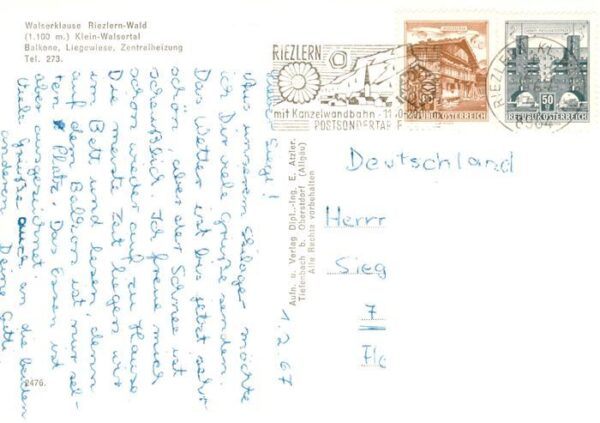 Walserklause Riezlern-Wald
(1.100 m) Klein-Walsertal
Balkone, Liegewiese, Zentralheizung
Tel. 273.
RIEZLERN
mit Kanzelwandbahn
POSTSONDERTARIF
REPUBLIK ÖSTERREICH
50
REPUBLIK ÖSTERREICH
RIEZLERN
1.2.67
Sieg!
Aus unserem Skilager möchte
ich Dir viele Grüße senden.
Das Wetter ist bis jetzt sehr
schön, aber der Schnee
scheußlich. Ich freue mich
schon wieder auf zu Hause
Die meiste Zeit liegen wir
im Bett und lesen, denn
auf dem Balkon ist nur sel-
ten Platz. Das Essen ist
aber ausgezeichnet.
Viele Grüße auch an die beiden
anderen
Deine
Aufn. u. Verlag Dipl.-Ing. E. Atzler.
Tiefenbach b. Oberstdorf (Allgäu)
Alle Rechte vorbehalten
Deutschland
Herrr
Sieg
7
2476.